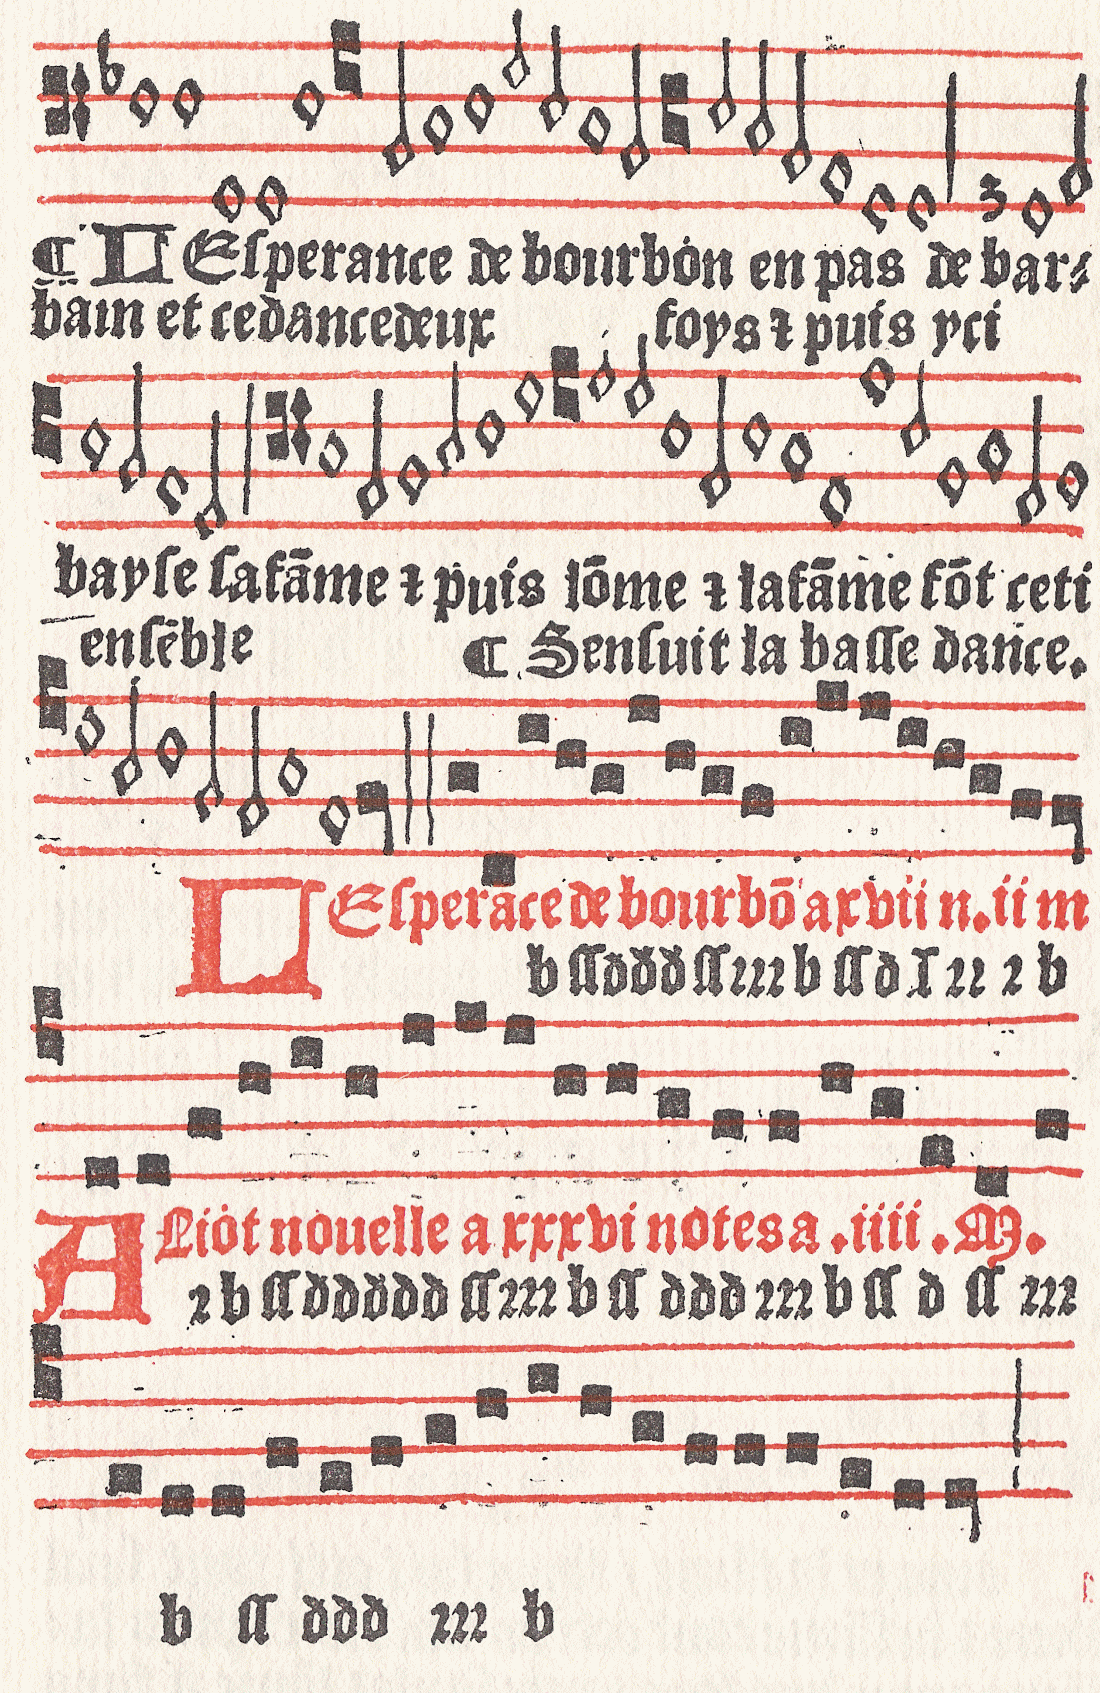 ¶ LEſperance de bourbon en pas de bar⸗
bain et ce dance deux foys ⁊ puis yci
bayſe ſa fāme ⁊ puis lōme ⁊ la fāme fōt ceti
enſēble ¶ Senſuit la baſſe dance.
LEſperāce de bourbō a xvii n. ii m
b ſſ ddd ſſ rrr b ſſ d ſ rr r b
ALiot nouelle a xxxvi notes a .iiii. M.
r b ſſ ddddd ſſ rrr b ſſ ddd rrr b ſſ d ſſ rrr
b ſſ ddd rrr b